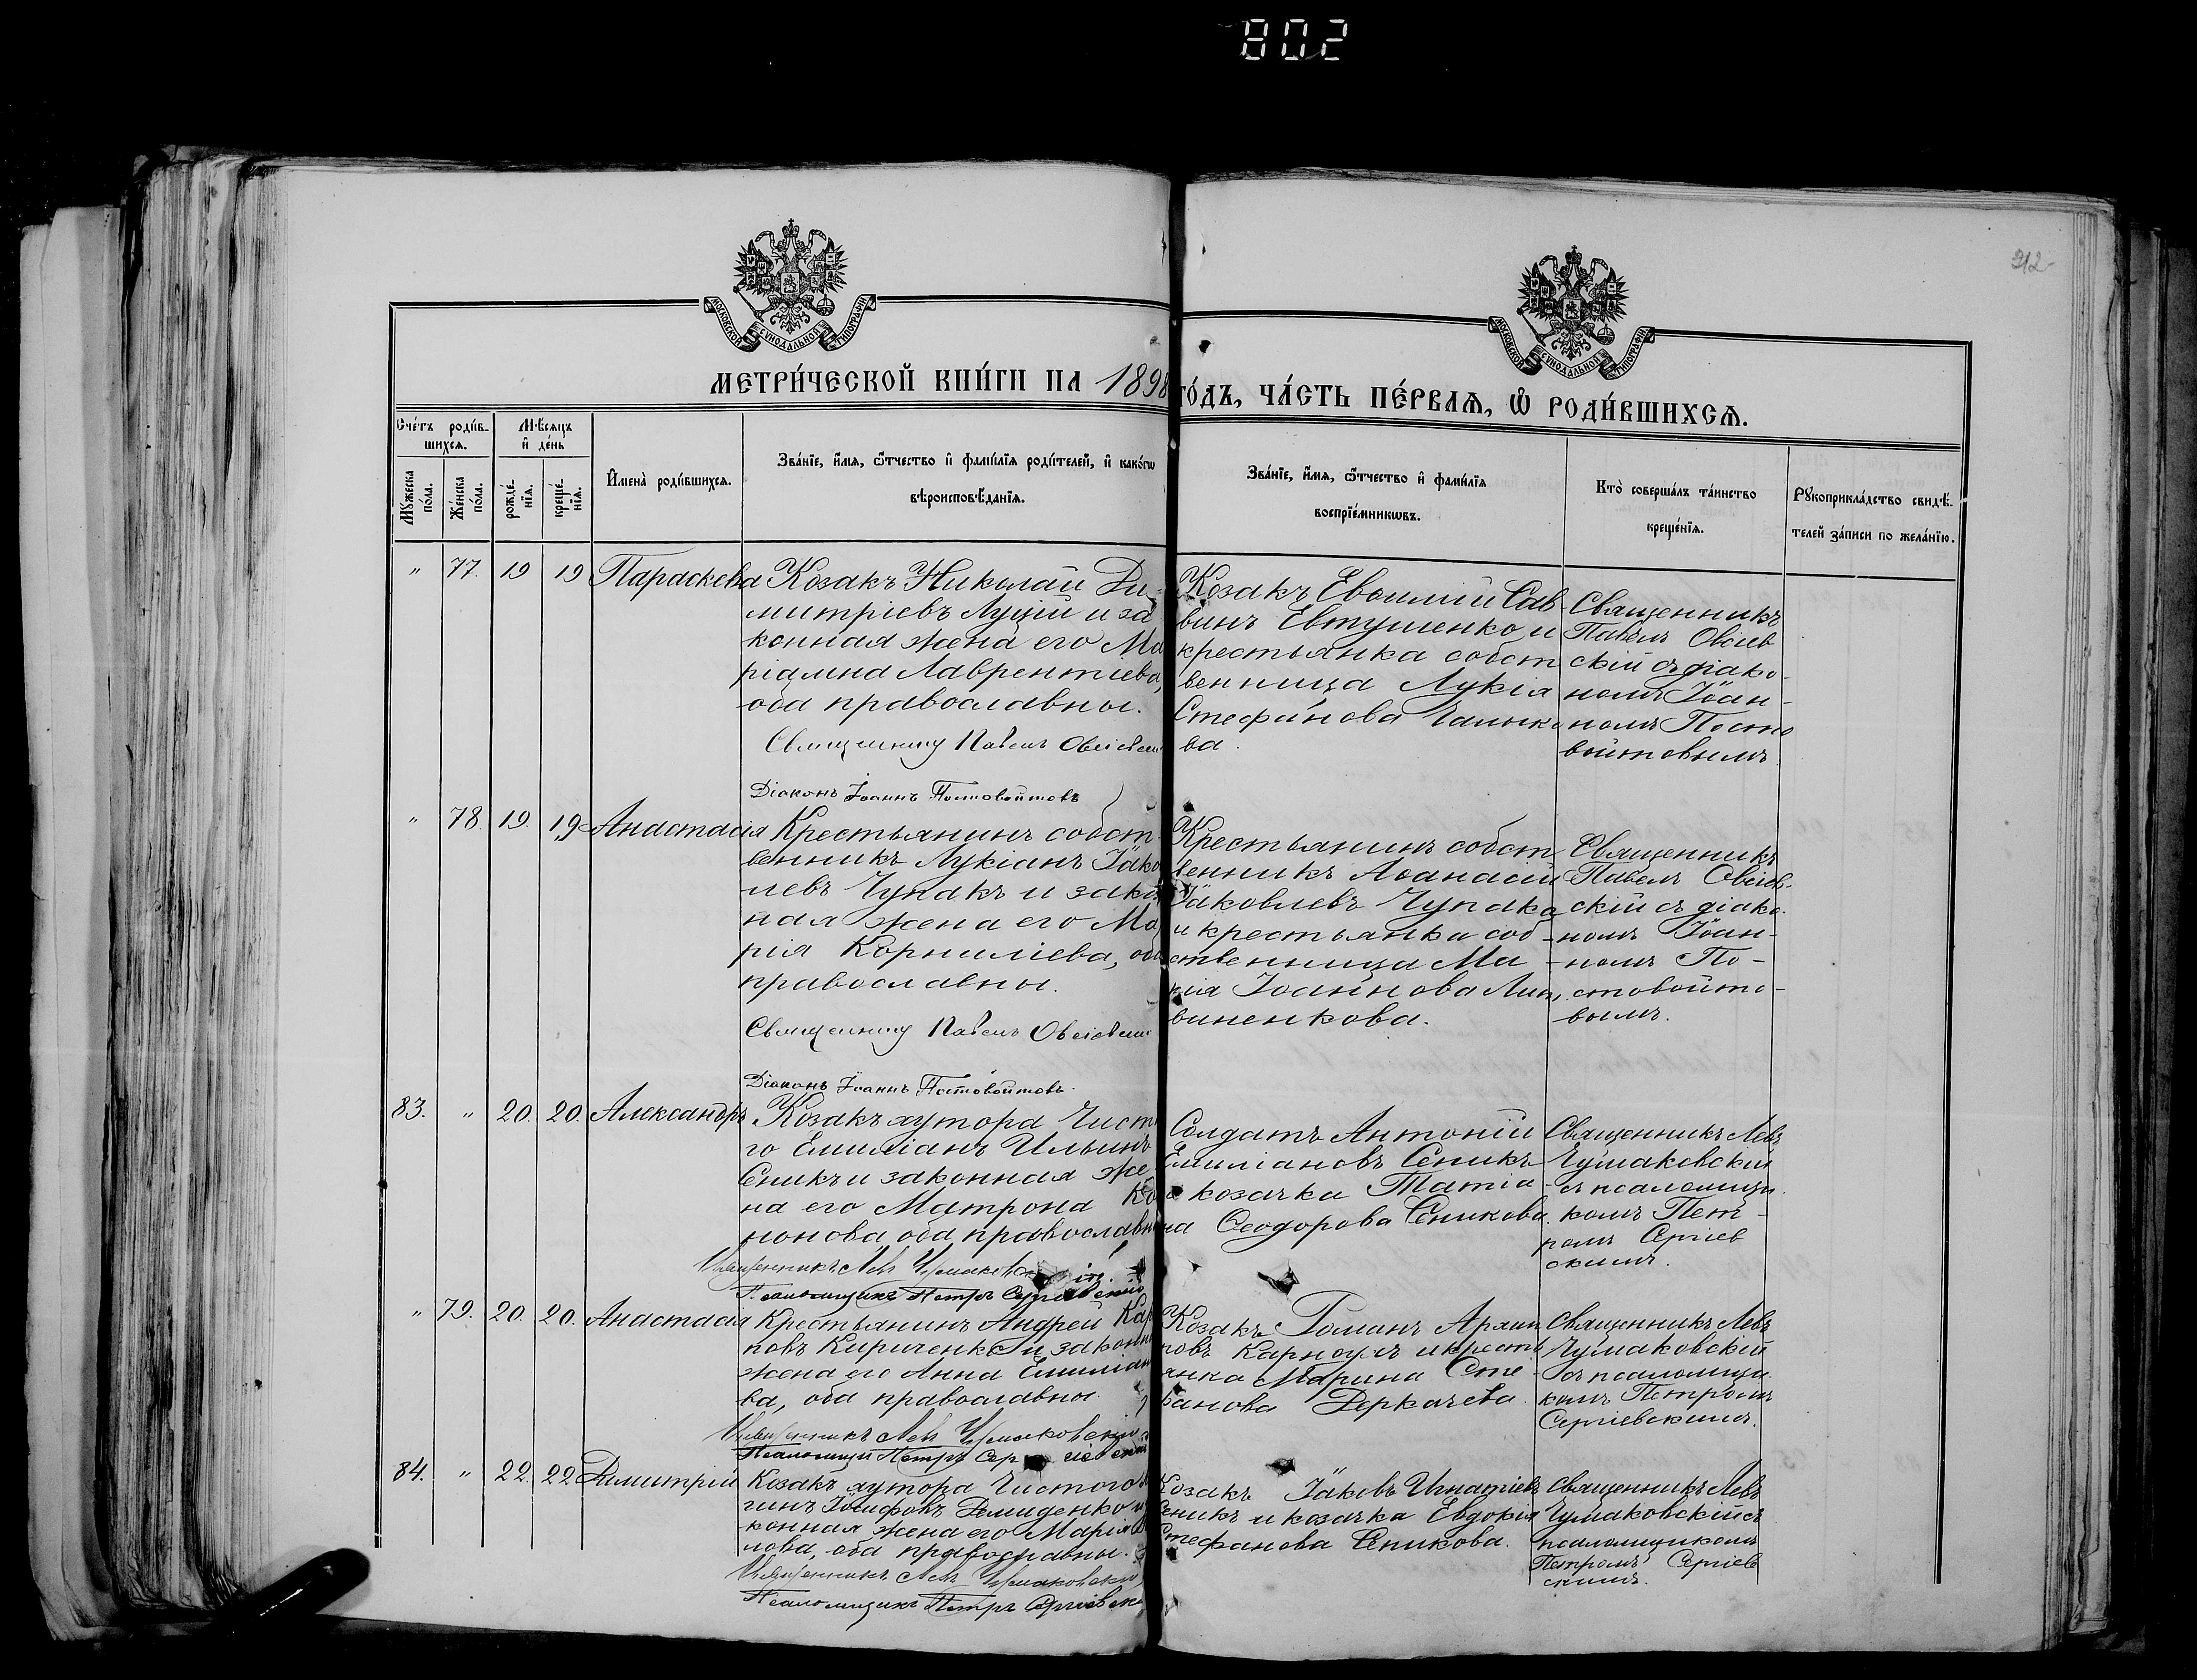 802
212
МОСКОВСКОЙ СѴНОДАЛЬНОЙ ТИПОГРАФІИ
МОСКОВСКОЙ СѴНОДАЛЬНОЙ ТИПОГРАФІИ
МЕТРИ́ЧЕСКОЙ КНИ́ГИ НА 1898 ГО́ДЪ, ЧА́СТЬ ПЕ́РВАѦ, Ѡ҆ РОДИ́ВШИХСѦ.
Сче́тъ роди́в-
шихсѧ.
Мꙋ́жеска по́ла.
Же́нска по́ла.
Мѣ́сѧцъ
и҆ де́нь
рожде́-
нїѧ.
креще́-
нїѧ.
И҆мена̀ роди́вшихсѧ.
Зва́нїе, и҆́мѧ, ѻ҆́тчество и҆ фами́лїѧ роди́телей, и҆ како́гѡ
вѣроисповѣ́данїѧ.
Зва́нїе, и҆́мѧ, ѻ҆́тчество и҆ фами́лїѧ
воспрїе́мникѡвъ.
Кто̀ соверша́лъ та́инство
креще́нїѧ.
Рꙋкоприкла́дство свидѣ́-
телей за́писи по жела́нїю.
" 77. 19 19 Параскева
Козакъ Николай Ди-
митріевъ Луцій и за
конная жена его Ма
ріамна Лаврентіева,
оба православны.
Священникъ Павелъ Овсіевскі
Діаконъ Іоаннъ Постовойтовъ
Козакъ Евѳимій Сав-
винъ Евтушенко и
крестьянка собст
венница Лукія
Стефанова
ва.
Священникъ
Павелъ Овсіев
скій съ діако-
номъ Іоан-
номъ Посто
войтовымъ.
" 78. 19. 19 Анастасія
Крестьянинъ собст-
венникъ Лукіанъ Іако
левъ Чупакъ и закон
ная жена его Ма
рія Корниліева, оба
православны.
Священникъ Павелъ Овсіевскі
Діаконъ Іоаннъ Постовойтовъ.
Крестьянинъ собст
венникъ Аѳанасій
Іаковлевъ Чупака
и крестьянка соб-
ственница Ма-
рія Іоаннова Лит,
виненкова.
Священникъ
Павелъ Овсіев-
скій съ діако-
номъ Іоан-
номъ По-
стовойто-
вымъ.
83. " 20. 20. Александръ
Козакъ хутора Чист
го Емиліанъ Ильинъ
Сеникъ и законная же
на его Матрона Ко
нонова оба православны
Священникъ Левъ Чумаковскій.
Псаломщикъ Петръ Сергіевскій
Солдатъ Антоній
Емиліановъ Сеникъ
и козачка Татіа-
на Ѳеодорова Сеникова.
Священникъ Левъ
Чумаковскій
съ псаломщи-
комъ Пет-
ромъ Сергіев
скимъ.
" 79. 20. 20. Анастасія
Крестьянинъ Андрей Кар
повъ Кириченко и законн
жена его Анна Емиліан
ва, оба православны.
Священникъ Левъ Чумаковскій
Псаломщи Петръ Сергіевскій
Козакъ Романъ
повъ и кресть
янка Марина Сте-
фанова Деркачева.
Священникъ Левъ
Чумаковскій
съ псаломщи-
комъ Петромъ
Сергіевскимъ.
84. " 22. 22 Димитрій
Козакъ хутора Чистого
гинъ Іосифовъ Демиденко и
конная жена его Марія
лова, оба православны.
Священникъ Левъ Чумаковскій
Псаломщикъ Петръ Сергіевскі
Козакъ Іаковъ Игнатіевъ
Сеникъ и козачка Евдокія
Стефанова Сеникова.
Священникъ Левъ
Чумаковскій съ
псаломщикомъ
Петромъ Сергіев
скимъ.